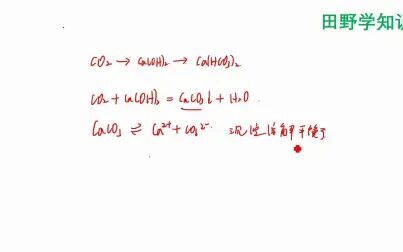 田野学知识
CO₂ → Ca(OH)₂ → Ca(HCO₃)₂
CO₂ + Ca(OH)₂ = CaCO₃↓ + H₂O
CaCO₃ ⇌ Ca²⁺ + CO₃²⁻ 沉淀溶解平衡